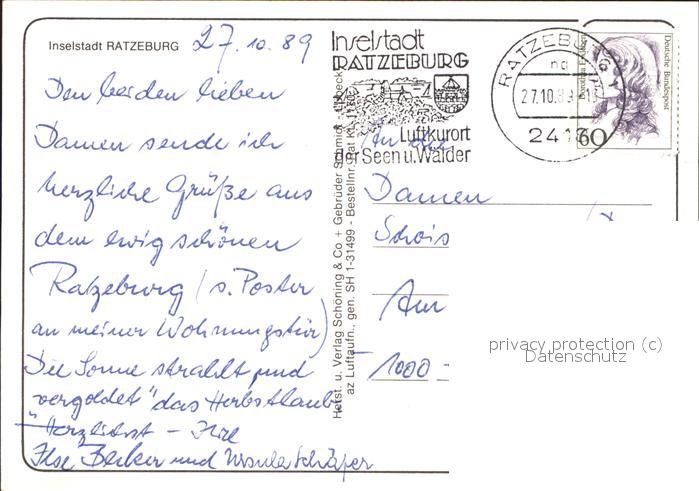 Inselstadt RATZEBURG 27.10.89
Den beiden lieben
Damen sende ich
herzliche Grüße aus
dem ewig schönen
Ratzeburg (s. Poster
an meiner Wohnungstür)
Die Sonne strahlt und
"vergoldet" das Herbstlaub
Herzlichst - Ihre
Ilse Becker und Ursula Schäfer
Inselstadt
RATZEBURG
Luftkurort
der Seen u. Wälder
RATZEBURG 1
27.10.89
2418
Deutsche Bundespost
60
Herst. u. Verlag Schöning & Co + Gebrüder Schmidt - Lübeck
az Luftaufn., gen. SH 1-31499 - Bestellnr.
An die
Damen
1000 -
privacy protection (c)
Datenschutz